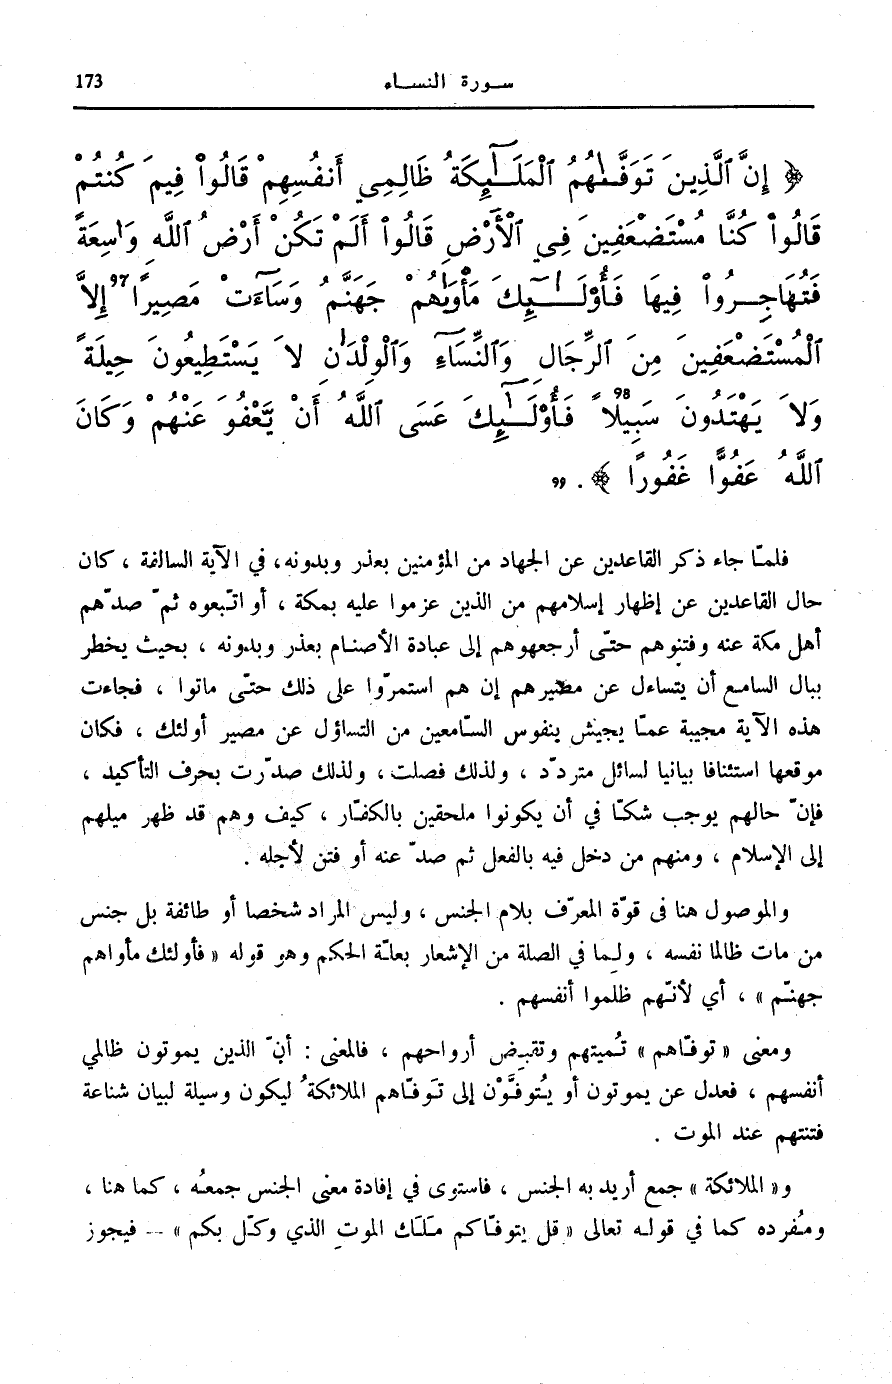 سورة النساء 173
﴿ إِنَّ ٱلَّذِينَ تَوَفَّىٰهُمُ ٱلْمَلَـٰٓئِكَةُ ظَالِمِي أَنفُسِهِمْ قَالُواْ فِيمَ كُنتُمْ
قَالُواْ كُنَّا مُسْتَضْعَفِينَ فِي ٱلْأَرْضِ قَالُواْ أَلَمْ تَكُنْ أَرْضُ ٱللَّهِ وَٰسِعَةً
فَتُهَاجِرُواْ فِيهَا فَأُوْلَـٰٓئِكَ مَأْوَىٰهُمْ جَهَنَّمُ وَسَآءَتْ مَصِيرًا 97 إِلاَّ
ٱلْمُسْتَضْعَفِينَ مِنَ ٱلرِّجَالِ وَٱلنِّسَآءِ وَٱلْوِلْدَٰنِ لاَ يَسْتَطِيعُونَ حِيلَةً
وَلاَ يَهْتَدُونَ سَبِيلًا 98 فَأُوْلَـٰٓئِكَ عَسَى ٱللَّهُ أَنْ يَّعْفُوَ عَنْهُمْ وَكَانَ
ٱللَّهُ عَفُوًّا غَفُورًا ﴾ . 99
فلمّا جاء ذكر القاعدين عن الجهاد من المؤمنين بعذر وبدونه، في الآية السالفة ، كان
حال القاعدين عن إظهار إسلامهم من الذين عزموا عليه بمكة ، أو اتّبعوه ثمّ صدّهم
أهل مكة عنه وفتنوهم حتّى أرجعوهم إلى عبادة الأصنام بعذر وبدونه ، بحيث يخطر
ببال السامع أن يتساءل عن مصيرهم إن هم استمرّوا على ذلك حتّى ماتوا ، فجاءت
هذه الآية مجيبة عمّا يجيش بنفوس السّامعين من التساؤل عن مصير أولئك ، فكان
موقعها استئنافا بيانيا لسائل متردّد ، ولذلك فصلت ، ولذلك صدّرت بحرف التأكيد ،
فإنّ حالهم يوجب شكّا في أن يكونوا ملحقين بالكفّار ، كيف وهم قد ظهر ميلهم
إلى الإسلام ، ومنهم من دخل فيه بالفعل ثم صدّ عنه أو فتن لأجله .
والموصول هنا فى قوّة المعرّف بلام الجنس ، وليس المراد شخصا أو طائفة بل جنس
من مات ظالما نفسه ، ولـما في الصلة من الإشعار بعلّة الحكم وهو قوله « فأولئك مأواهم
جهنّم » ، أي لأنّهم ظلموا أنفسهم .
ومعنى « توفّاهم » تُميتهم وتقبض أرواحهم ، فالمعنى : أنّ الذين يموتون ظالمي
أنفسهم ، فعدل عن يموتون أو يُتوفَّوْن إلى تَوفّاهم الملائكةُ ليكون وسيلة لبيان شناعة
فتنتهم عند الموت .
و« الملائكة » جمع أريد به الجنس ، فاستوى في إفادة معنى الجنس جمعُه ، كما هنا ،
ومُفرده كما في قوله تعالى « قل يتوفّاكم مَلَك الموتِ الذي وكّل بكم » – فيجوز